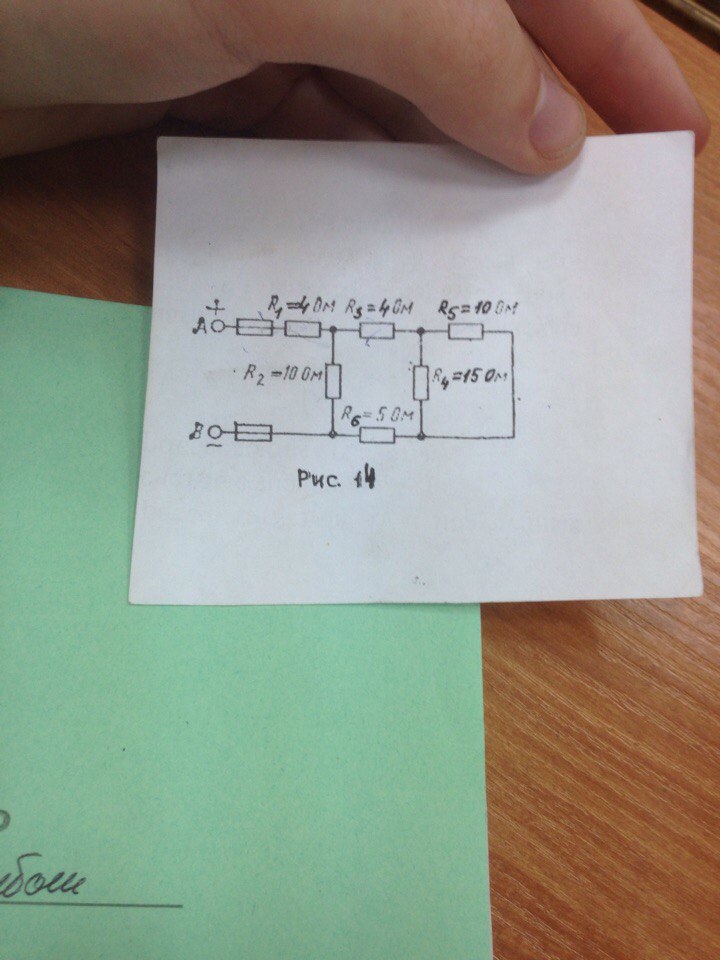 +
R1=4 Ом R3=4 Ом R5=10 Ом
A
R2=10 Ом R4=15 Ом
R6=5 Ом
B
−
Рис. 14